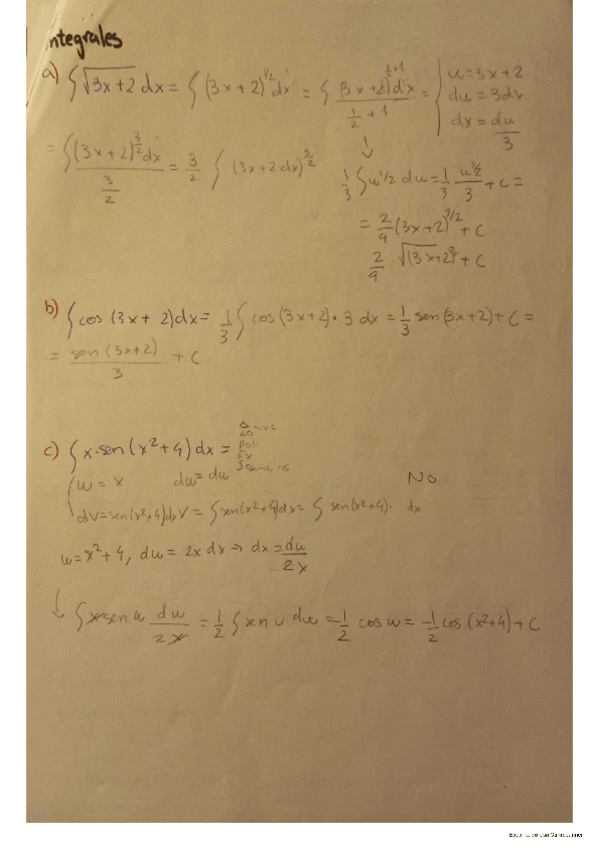 Integrales
a) ∫√3x+2 dx = ∫(3x+2)^1/2 dx = ∫ (3x+2)^(1/2+1) dx / (1/2 + 1) = { u=3x+2
du = 3dx
dx = du/3
= ∫ (3x+2)^3/2 dx / (3/2) = 3/2 ∫ (3x+2 dx)^3/2
↓
1/3 ∫ u^1/2 du = 1/3 u^3/2 / 3 + c =
= 2/9 (3x+2)^3/2 + c
2/9 √(3x+2)^3 + c
b) ∫ cos (3x+2) dx = 1/3 ∫ cos (3x+2) · 3 dx = 1/3 sen (3x+2) + c =
= sen (3x+2) / 3 + c
c) ∫ x·sen (x²+4) dx =
u = x du = du No
dV = sen(x²+4)dx V = ∫ sen(x²+4)dx = ∫ sen(x²+4)· dx
u = x²+4, du = 2x dx → dx = du/2x
↓ ∫ x sen u du/2x = 1/2 ∫ sen u du = -1/2 cos u = -1/2 cos (x²+4) + c